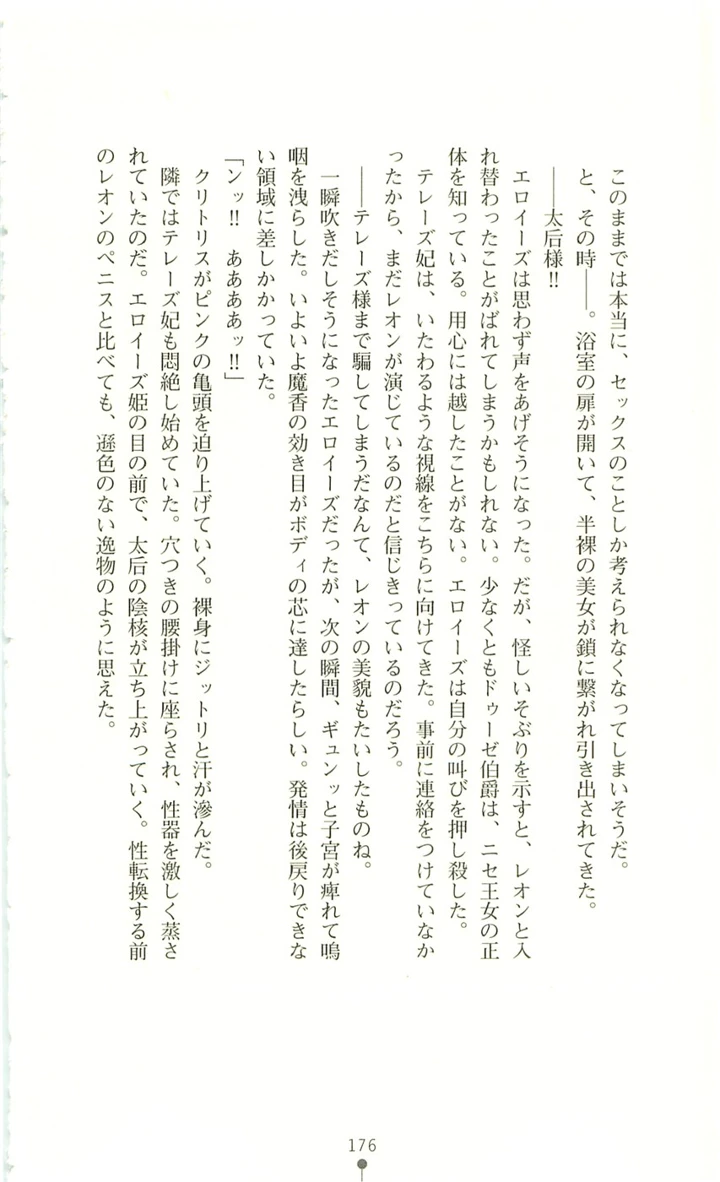 このままでは本当に、セックスのことしか考えられなくなってしまいそうだ。
と、その時――。浴室の扉が開いて、半裸の美女が鎖に繋がれ引き出されてきた。
――太后様!!
エロイーズは思わず声をあげそうになった。だが、怪しいそぶりを示すと、レオンと入
れ替わったことがばれてしまうかもしれない。少なくともドゥーゼ伯爵は、ニセ王女の正
体を知っている。用心には越したことがない。エロイーズは自分の叫びを押し殺した。
テレーズ妃は、いたわるような視線をこちらに向けてきた。事前に連絡をつけていなか
ったから、まだレオンが演じているのだと信じきっているのだろう。
――テレーズ様まで騙してしまうだなんて、レオンの美貌もたいしたものね。
一瞬吹きだしそうになったエロイーズだったが、次の瞬間、ギュンッと子宮が痺れて嗚
咽を洩らした。いよいよ魔香の効き目がボディの芯に達したらしい。発情は後戻りできな
い領域に差しかかっていた。
「ンッ!! ああああッ!!」
クリトリスがピンクの亀頭を迫り上げていく。裸身にジットリと汗が滲んだ。
隣ではテレーズ妃も悶絶し始めていた。穴つきの腰掛けに座らされ、性器を激しく蒸さ
れていたのだ。エロイーズ姫の目の前で、太后の陰核が立ち上がっていく。性転換する前
のレオンのペニスと比べても、遜色のない逸物のように思えた。
176